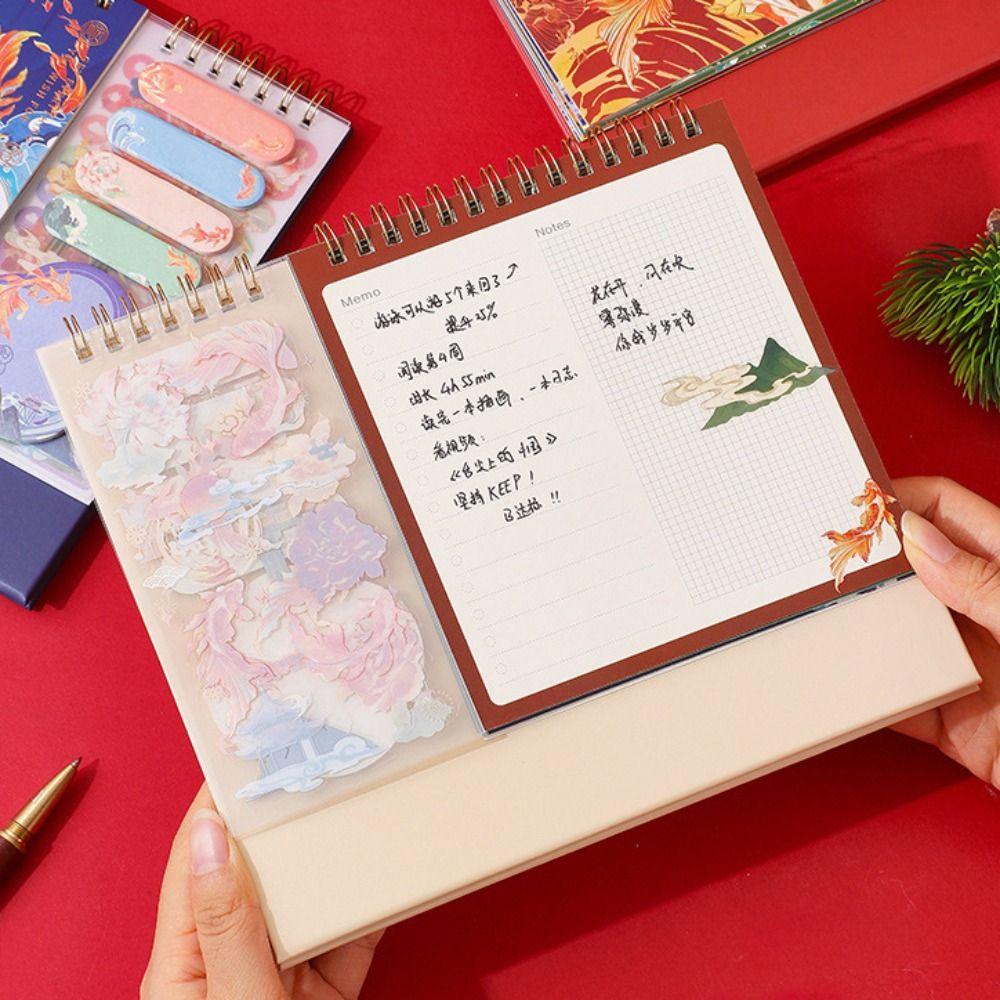 Memo
游泳可以游5个来回了
提升25%
阅读第4周
时长 4h 55min
读完一本插画、一本日志
看视频:
《舌尖上的中国》
坚持 KEEP!
已达标!!
Notes
花在开,风在吹
雾弥漫
你我岁岁平安
WISH FO